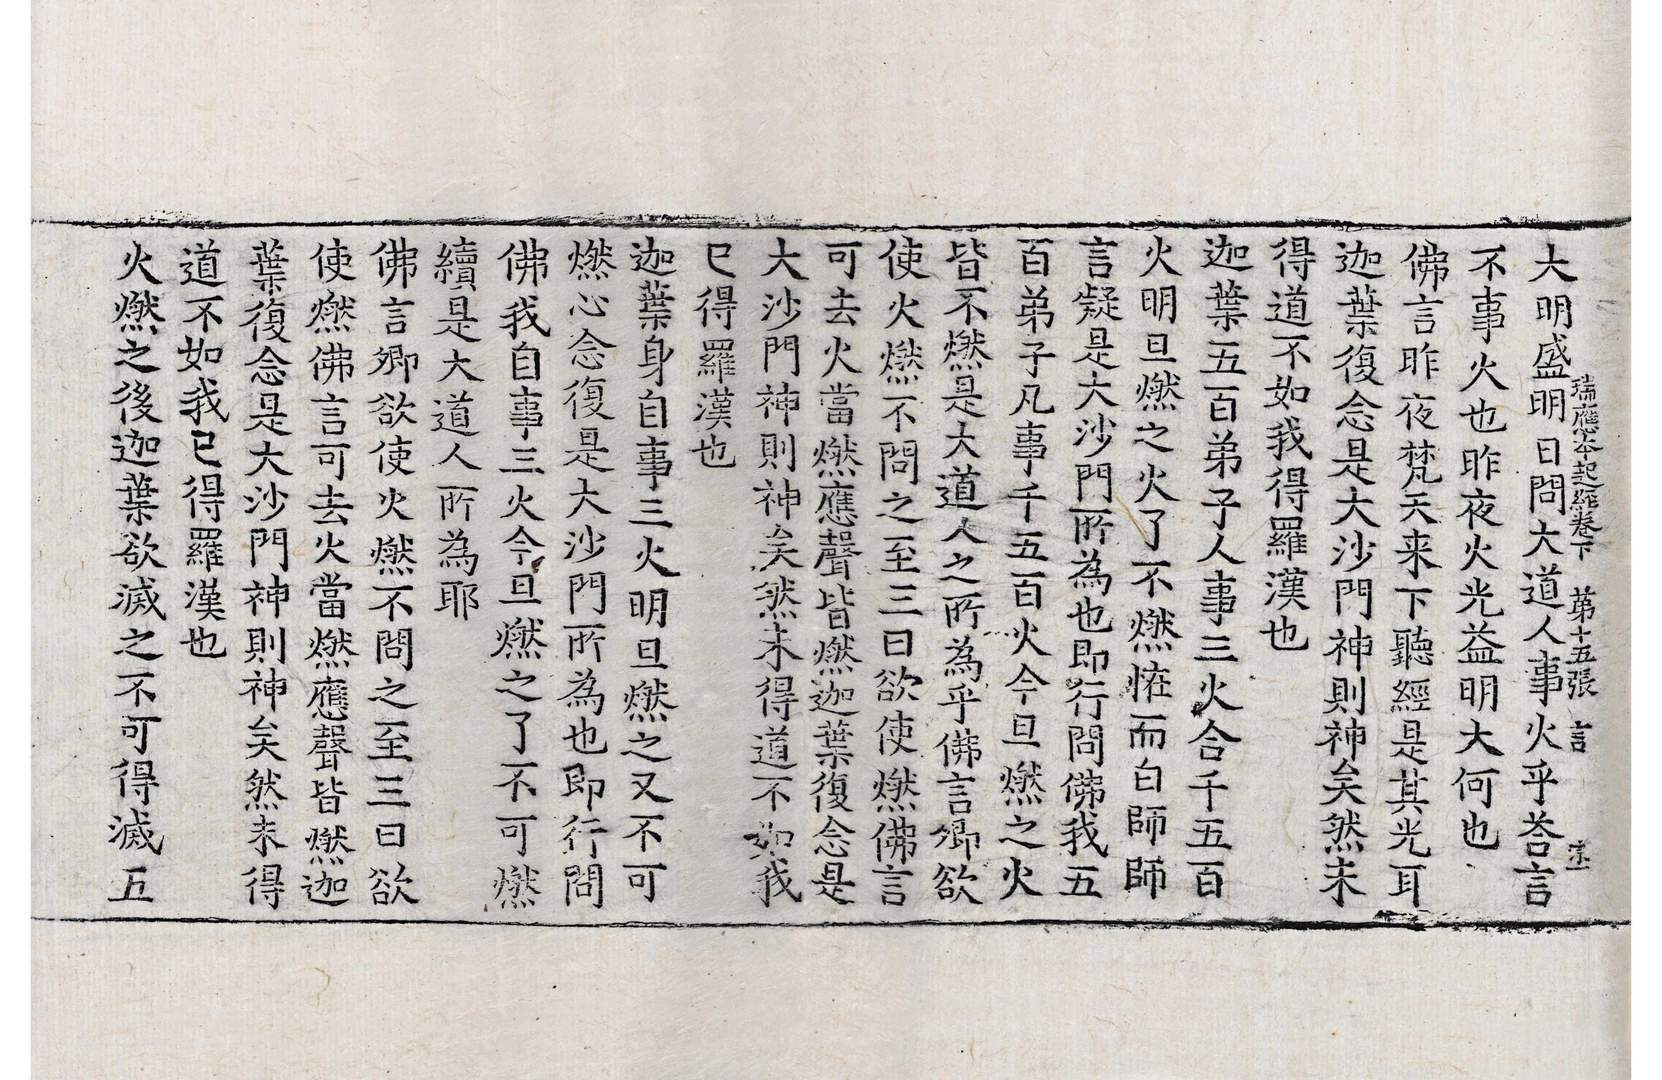 瑞應本起經卷下 第十五張 言 宋一
大明盛明日問大道人事火乎荅言
不事火也昨夜火光益明大何也
佛言昨夜梵天来下聽經是其光耳
迦葉復念是大沙門神則神矣然未
得道不如我得羅漢也
迦葉五百弟子人事三火合千五百
火明旦燃之火了不燃怪而白師師
言疑是大沙門所為也即行問佛我五
百弟子凡事千五百火今旦燃之火
皆不燃是大道人之所為乎佛言卿欲
使火燃不問之至三曰欲使燃佛言
可去火當燃應聲皆燃迦葉復念是
大沙門神則神矣然未得道不如我
已得羅漢也
迦葉身自事三火明旦燃之又不可
燃心念復是大沙門所為也即行問
佛我自事三火今旦燃之了不可燃
續是大道人所為耶
佛言卿欲使火燃不問之至三曰欲
使燃佛言可去火當燃應聲皆燃迦
葉復念是大沙門神則神矣然未得
道不如我已得羅漢也
火燃之後迦葉欲滅之不可得滅五